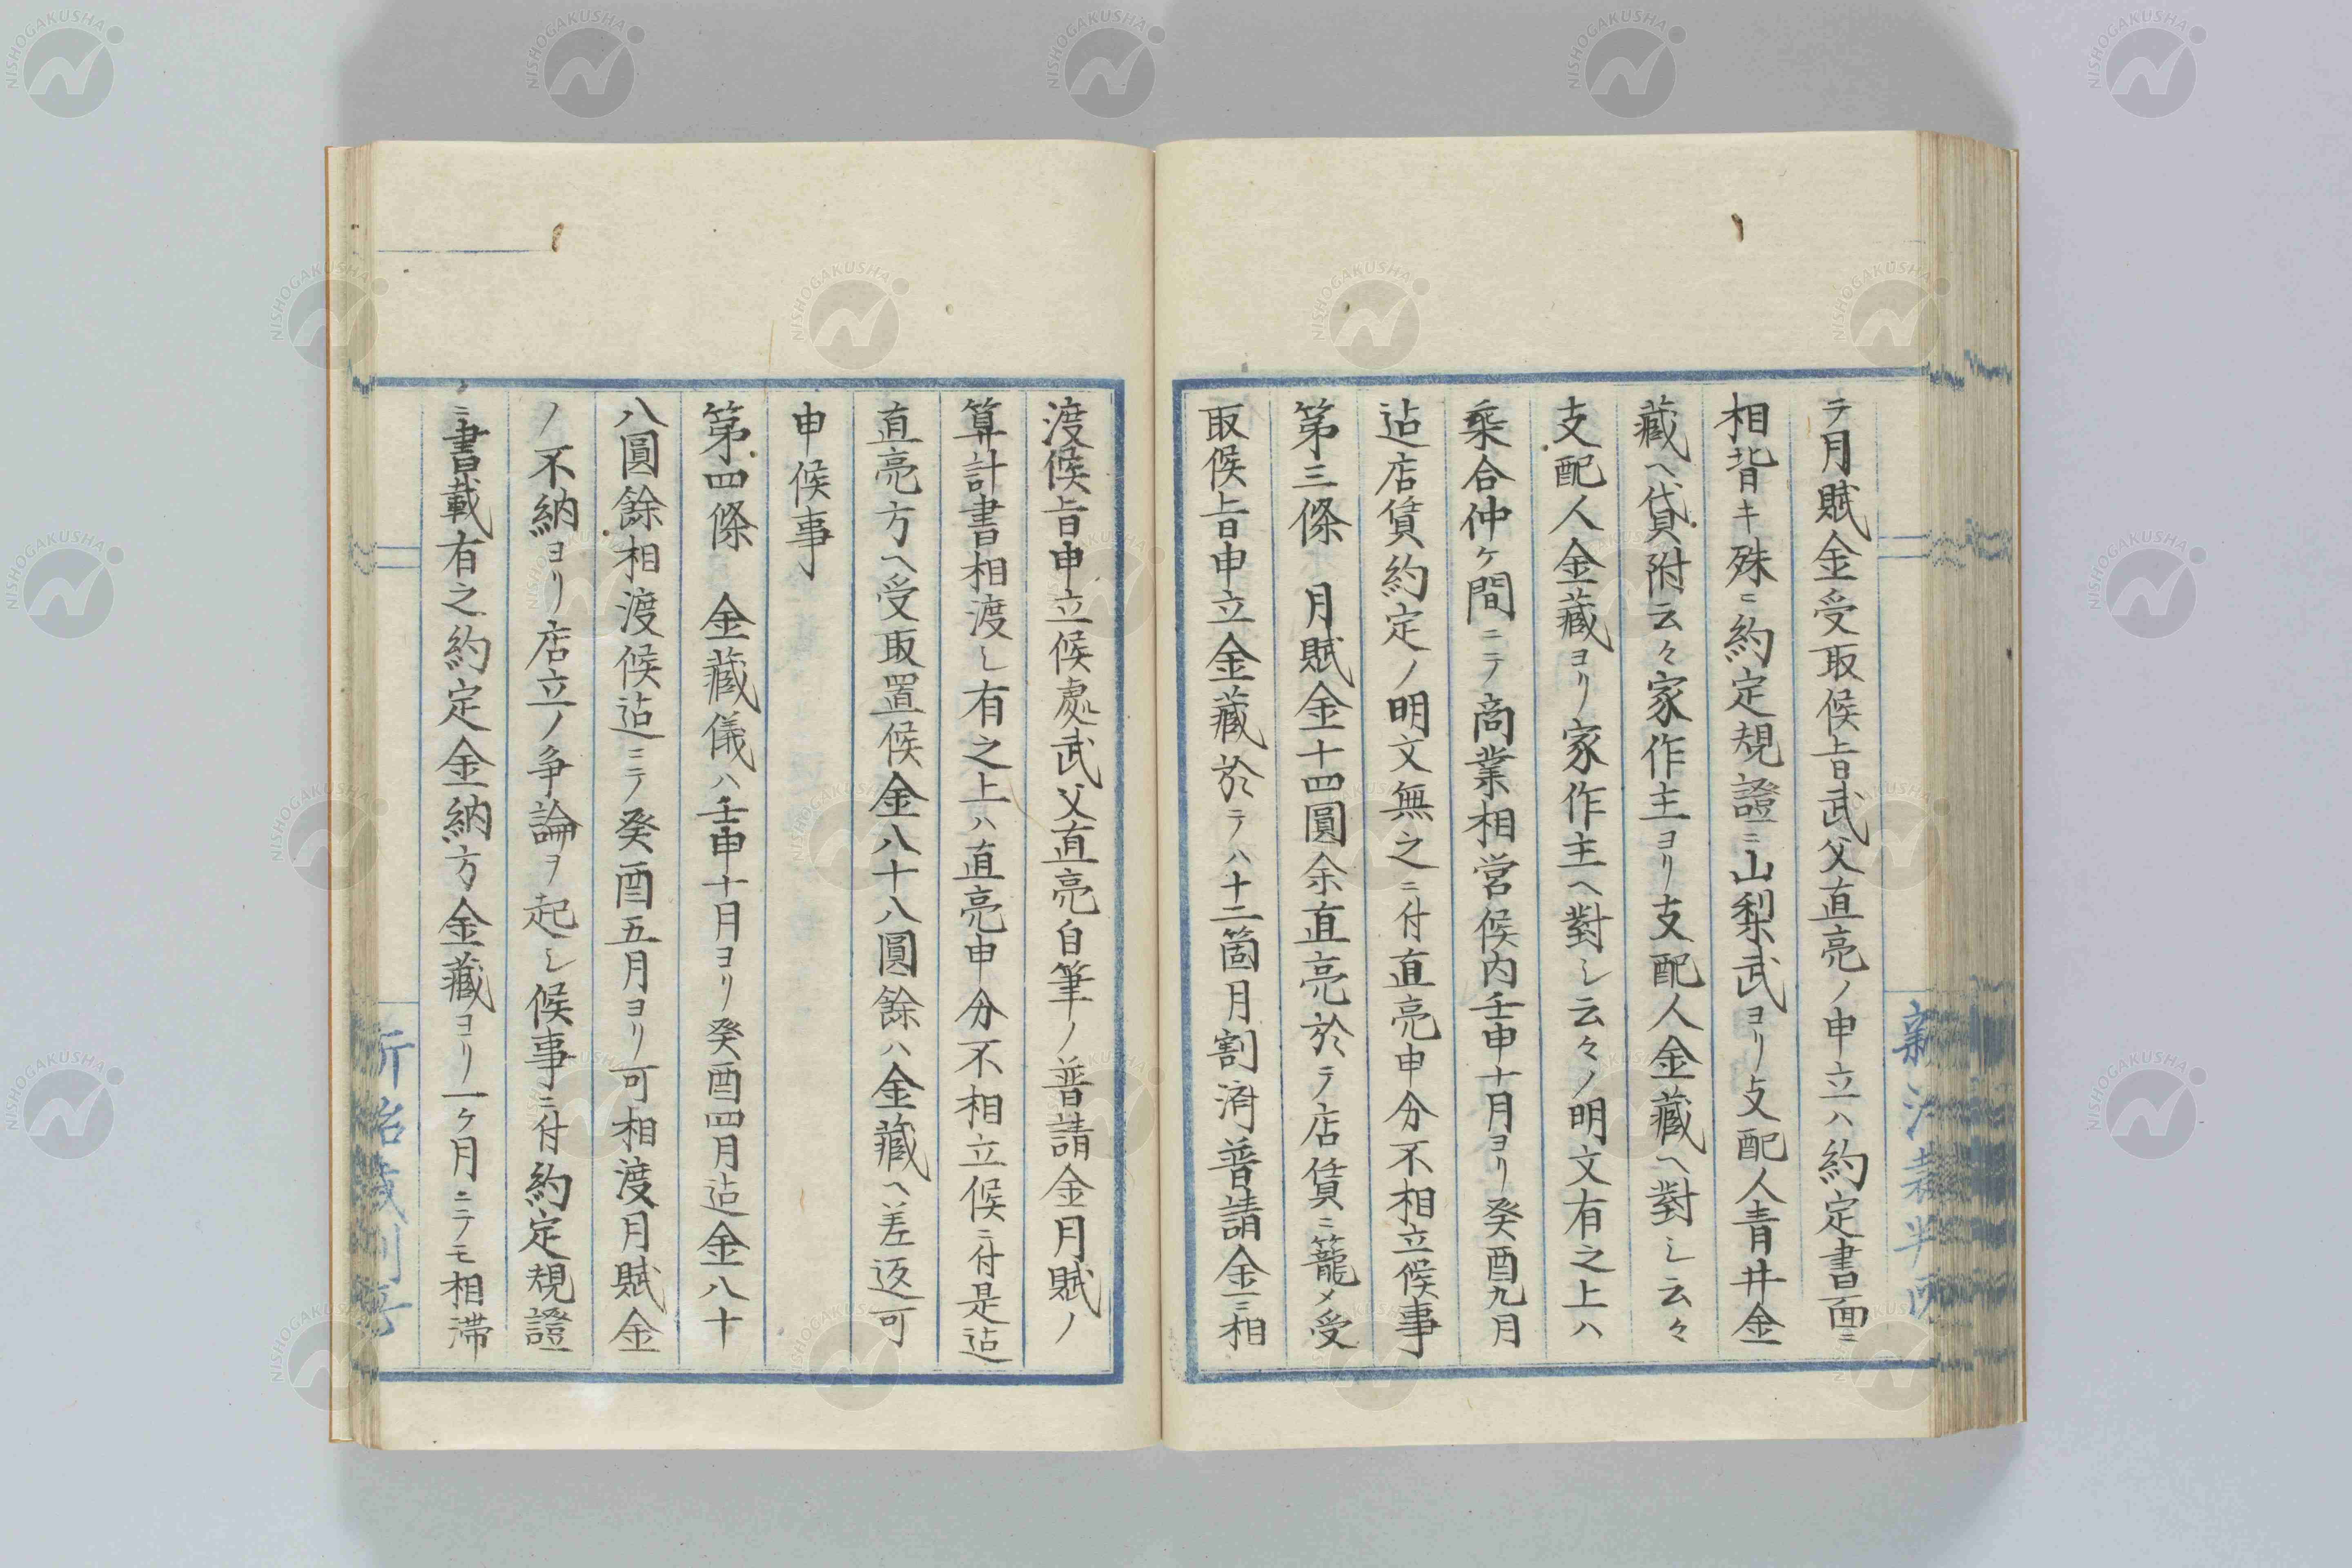 テ月賦金受取候旨武父直亮ノ申立ハ約定書面ニ
相背キ殊ニ約定規證ニ山梨武ヨリ支配人青井金
藏ヘ貸附云々家作主ヨリ支配人金藏ヘ對シ云々
支配人金藏ヨリ家作主ヘ對シ云々ノ明文有之上ハ
乗合仲ケ間ニテ商業相営候内壬申十月ヨリ癸酉九月
迠店賃約定ノ明文無之ニ付直亮申分不相立候事
第三條　月賦金十四圓余直亮於テ店賃ニ籠メ受
取候旨申立金藏於テハ十二箇月割済普請金ニ相
渡候旨申立候處武父直亮自筆ノ普請金月賦ノ
算計書相渡し有之上ハ直亮申分不相立候ニ付是迠
直亮方ヘ受取置候金八十八圓餘ハ金藏ヘ差返可
申候事
第四條　金藏儀ハ壬申十月ヨリ癸酉四月迠金八十
八圓餘相渡候迠ニテ癸酉五月ヨリ可相渡月賦金
ノ不納ヨリ店立ノ争論ヲ起シ候事ニ付約定規證
ニ書載有之約定金納方金藏ヨリ一ケ月ニテモ相滞
新治裁判所
NISHOGAKUSHA